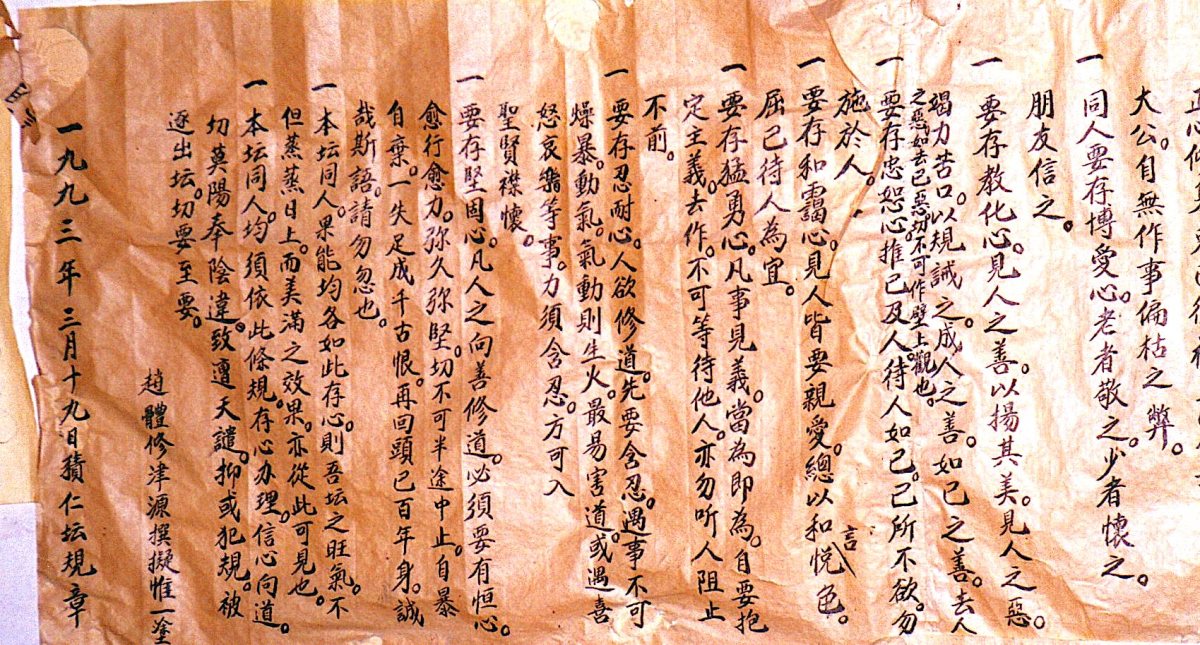 大公。自無作事偏枯之弊。
一 同人要存博愛心。老者敬之。少者懷之。
朋友信之。
一 要存教化心。見人之善。以揚其美。見人之惡。
竭力苦口。以規誡之。成人之善。如己之善。去人
之惡。如去己惡。切不可作壁上觀也。
一 要存忠恕心。推己及人。待人如己。己所不欲。勿
施於人。
一 要存和靄心。見人皆要親愛。總以和悅言色。
屈己待人為宜。
一 要存猛勇心。凡事見義。當為即為。自要抱
定主義。去作。不可等待他人。亦勿听人阻止
不前。
一 要存忍耐心。人欲修道。先要含忍。遇事不可
燥暴。動氣。氣動則生火。最易害道。或遇喜
怒哀樂等事。力須含忍。方可入
聖賢襟懷。
一 要存堅固心。凡人之向善修道。必須要有恒心。
愈行愈力。弥久弥堅。切不可半途中止。自暴
自棄。一失足成千古恨。再回頭已百年身。誠
哉斯語。請勿忽也。
一 本坛同人。果能均各如此存心。則吾坛之旺氣。不
但蒸蒸日上。而美滿之效果。亦從此可見也。
一 本坛同人。均須依此條規。存心办理。信心向道。
切莫陽奉陰違。致遭天譴。抑或犯規。被
逐出坛。切要至要。
趙體修津源撰擬惟一塗
一九九三年三月十九日積仁坛規章